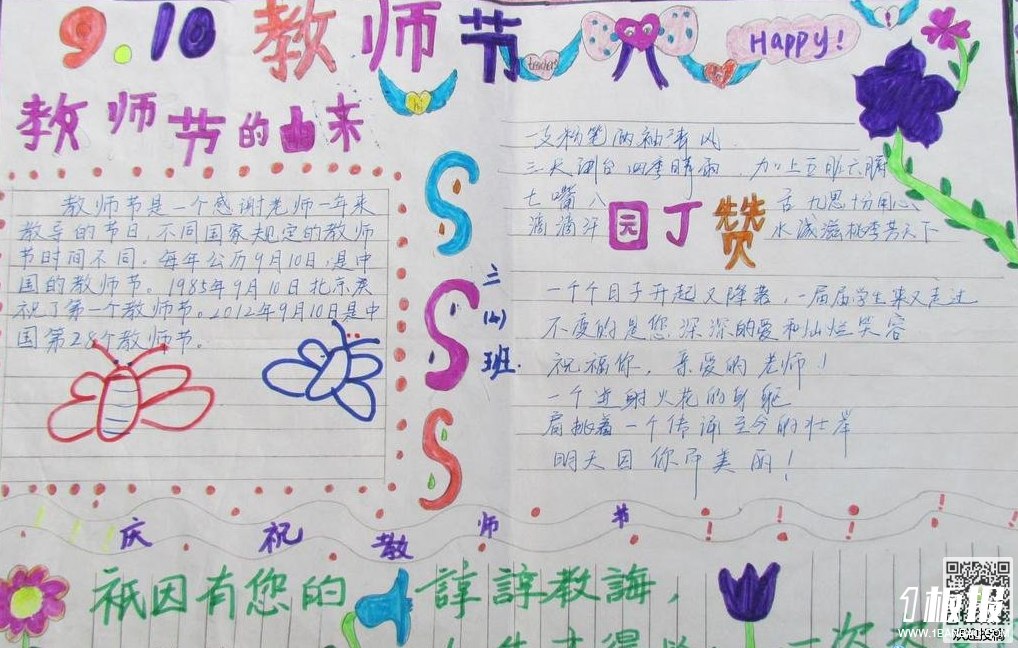 9.10 教师节
teachers
Happy!
教师节的由来
教师节是一个感谢老师一年来
教导的节日,不同国家规定的教师
节时间不同。每年公历9月10日,是中
国的教师节。1985年9月10日北京庆
祝了第一个教师节。2012年9月10日是中
国第28个教师节。
三(四)班.
一支粉笔两袖清风
三尺讲台四季晴雨,加上五眼六脐
七嘴八舌九思十分用心
滴滴汗水滋桃李芳天下
园丁赞
一个个日子升起又降落,一届届学生来又走过
不变的是您深深的爱和灿烂笑容
祝福你,亲爱的老师!
一个迸射火花的身躯
肩挑着一个传诵至今的壮举
明天因你而美丽!
庆祝教师节
祇因有您的諄諄教誨,
一次
1板报
WWW.1BANBAO.COM